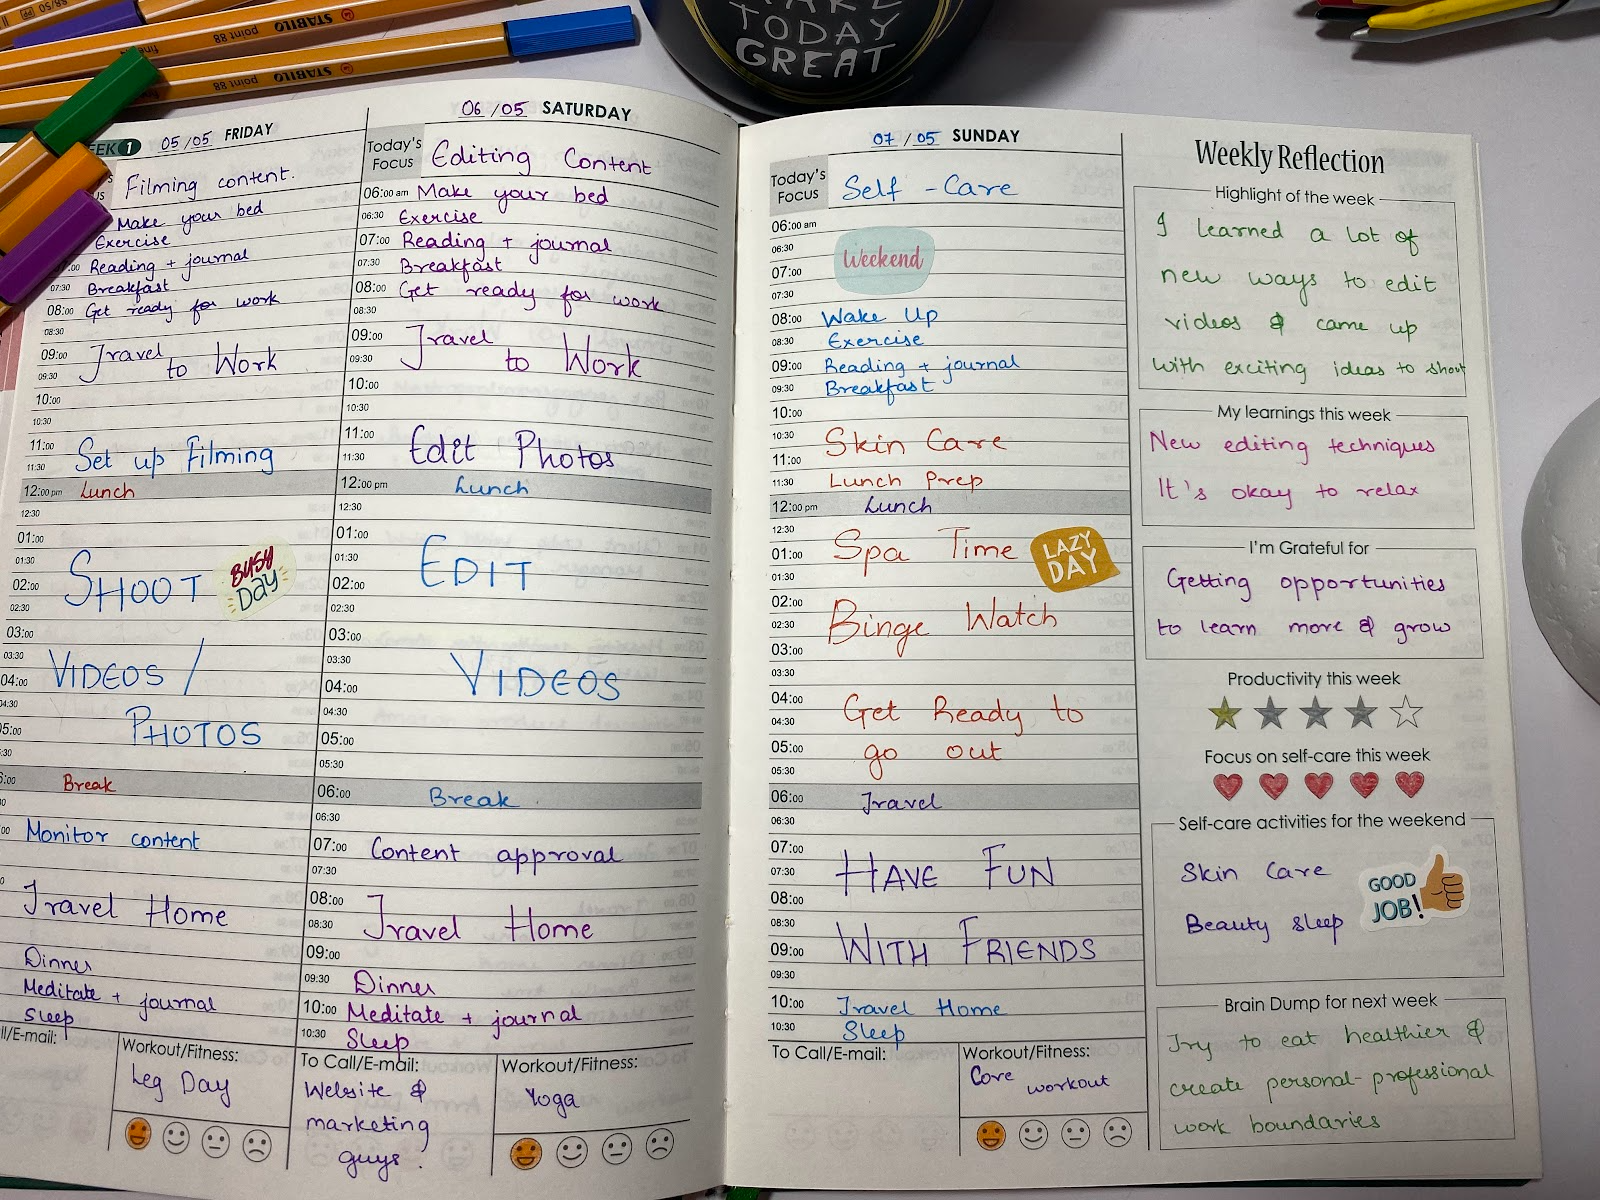 88/50
STABILO
point 88
STABILO
point 88
TODAY
GREAT
EEK 1
05/05 FRIDAY
Filming content.
Make your bed
Exercise
Reading + journal
07:30 Breakfast
08:00 Get ready for work
08:30
09:00 Travel
09:30 to Work
10:00
10:30
11:00
11:30 Set up Filming
12:00 pm Lunch
12:30
01:00
01:30
BUSY
DAY
02:00 SHOOT
02:30
03:00
03:30
04:00 VIDEOS /
04:30
05:00 PHOTOS
Break
Monitor content
Travel Home
Dinner
Meditate + journal
Sleep
ll/E-mail:
Workout/Fitness:
Leg Day
06/05 SATURDAY
Today's
Focus
Editing Content
06:00 am Make your bed
06:30 Exercise
07:00 Reading + journal
07:30 Breakfast
08:00 Get ready for work
08:30
09:00 Travel
09:30 to Work
10:00
10:30
11:00
11:30 Edit Photos
12:00 pm Lunch
12:30
01:00
01:30 EDIT
02:00
02:30
03:00
03:30
04:00 VIDEOS
04:30
05:00
05:30
06:00 Break
06:30
07:00 Content approval
07:30
08:00
08:30 Travel Home
09:00
09:30 Dinner
10:00 Meditate + journal
10:30 Sleep
To Call/E-mail:
Website &
marketing
guys!
Workout/Fitness:
Yoga
07/05 SUNDAY
Today's
Focus
Self-Care
06:00 am
06:30
Weekend
07:00
07:30
08:00 Wake Up
08:30 Exercise
09:00 Reading + journal
09:30 Breakfast
10:00
10:30 Skin Care
11:00
11:30 Lunch Prep
12:00 pm Lunch
12:30
01:00 Spa Time
LAZY
DAY
01:30
02:00
02:30 Binge Watch
03:00
03:30
04:00
04:30 Get Ready to
05:00 go out
05:30
06:00 Travel
06:30
07:00
07:30 HAVE FUN
08:00
08:30
09:00 WITH FRIENDS
09:30
10:00 Travel Home
10:30 Sleep
To Call/E-mail:
Workout/Fitness:
Core workout
Weekly Reflection
Highlight of the week
I learned a lot of
new ways to edit
videos & came up
with exciting ideas to shoot
My learnings this week
New editing techniques
It's okay to relax
I'm Grateful for
Getting opportunities
to learn more & grow
Productivity this week
Focus on self-care this week
Self-care activities for the weekend
Skin Care
Beauty sleep
GOOD
JOB!
Brain Dump for next week
Try to eat healthier &
create personal-professional
work boundaries